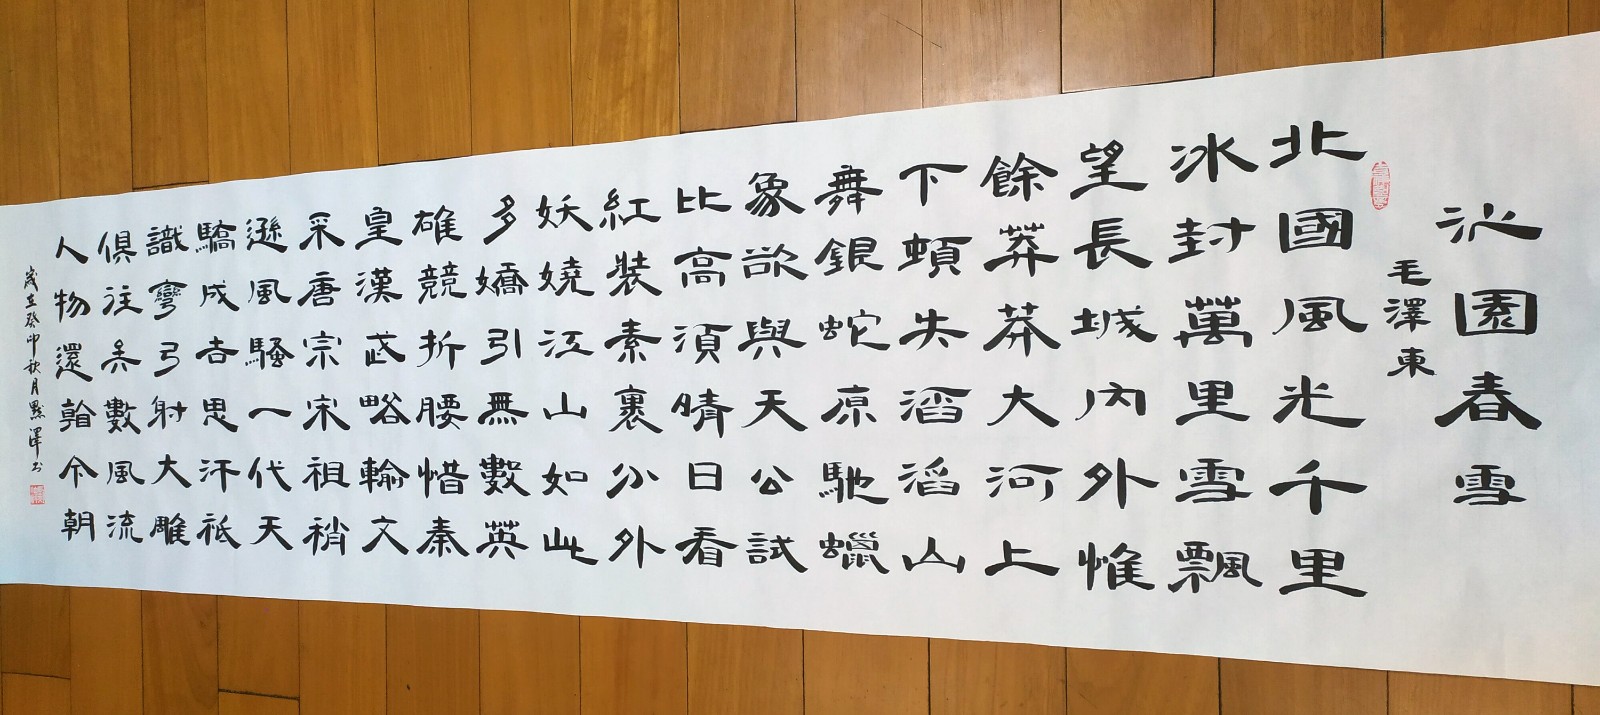 沁園春雪
毛澤東
北國風光千里
冰封萬里雪飄
望長城內外惟
餘莽莽大河上
下頓失滔滔山
舞銀蛇原馳蠟
象欲與天公試
比高須晴日看
紅裝素裹分外
妖嬈江山如此
多嬌引無數英
雄競折腰惜秦
皇漢武略輸文
采唐宗宋祖稍
遜風騷一代天
驕成吉思汗祗
識彎弓射大雕
俱往矣數風流
人物還看今朝
歲在癸卯秋月默澤书